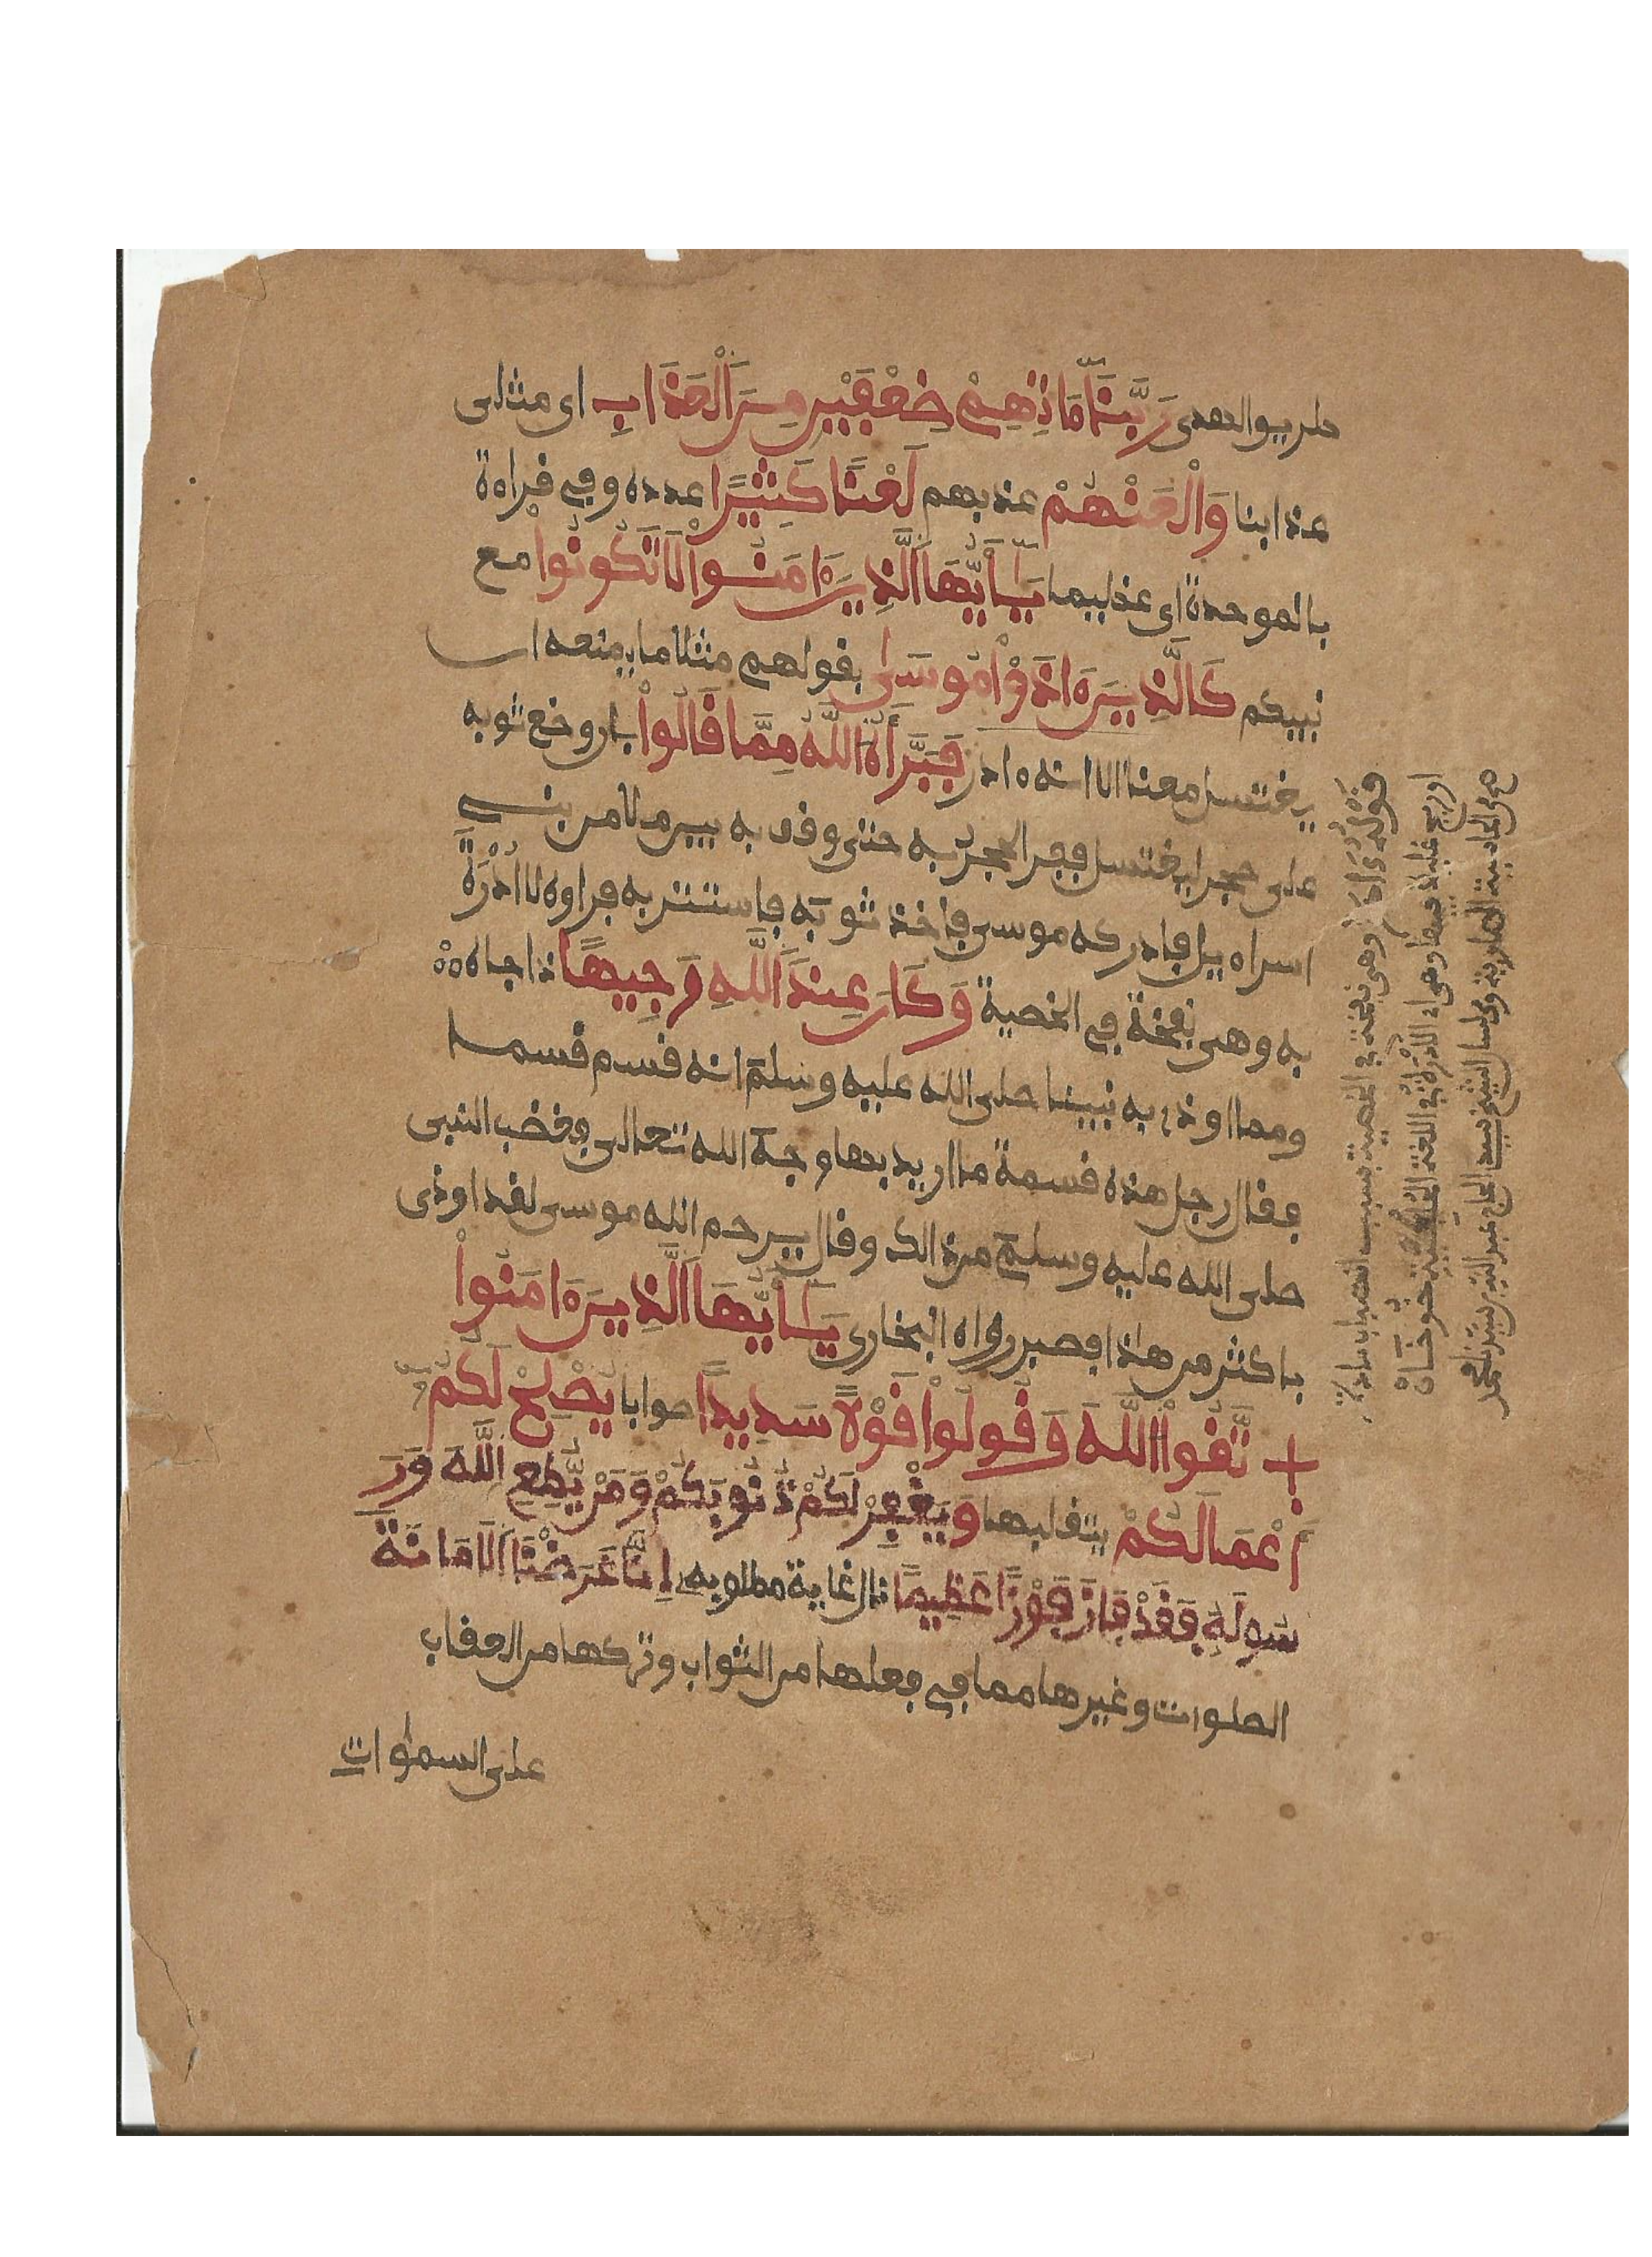 طريق الهدى رَبَّنَا ءَاتِهِمْ ضِعْفَيْنِ مِنَ الْعَذَابِ اى مثلى
عذابنا وَالْعَنْهُمْ عذبهم لَعْنًا كَثِيرًا عدده وفى قراءة
بالموحدة اى عظيما يَٰأَيُّهَا الَّذِينَ ءَامَنُوا لَا تَكُونُوا مع
نبيكم كَالَّذِينَ ءَاذَوْا مُوسَىٰ بقولهم مثلا ما يمنعه ان
يغتسل معنا الا انه ءادر فَبَرَّأَهُ اللَّهُ مِمَّا قَالُوا بان وضع ثوبه
على حجر ليغتسل ففر الحجر به حتى وقف به بين ملا من بنى
اسراءيل فادركه موسى فاخذ ثوبه فاستتر به فراوه لا أُدْرَةَ
به وهى نفخة فى الخصية وَكَانَ عِندَ اللَّهِ وَجِيهًا ذا جاه
ومما اوذى به نبينا صلى الله عليه وسلم انه قسم قسما
فقال رجل هذه قسمة ما اريد بها وجه الله تعالى فغضب النبى
صلى الله عليه وسلم من ذالك وقال يرحم الله موسى لقد اوذى
باكثر من هاذا فصبر رواه البخارى يَٰأَيُّهَا الَّذِينَ ءَامَنُوا
اتَّقُوا اللَّهَ وَقُولُوا قَوْلًا سَدِيدًا صوابا يُصْلِحْ لَكُمْ
أَعْمَالَكُمْ يتقبلها وَيَغْفِرْ لَكُمْ ذُنُوبَكُمْ وَمَنْ يُطِعِ اللَّهَ وَرَ
سُولَهُ فَقَدْ فَازَ فَوْزًا عَظِيمًا نال غاية مطلوبه إِنَّا عَرَضْنَا الْأَمَانَةَ
الصلوات وغيرها مما فى فعلها من الثواب وتركها من العقاب
على السموات
قوله وهى نفخة فى الخصية بسبب انصباب مادة